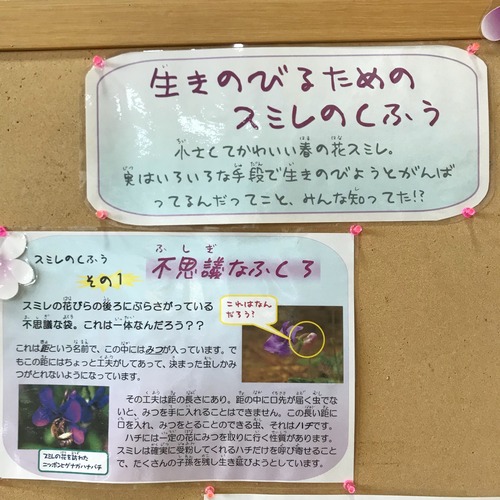 生きのびるための
スミレのくふう
小さくてかわいい春の花スミレ。
実はいろいろな手段で生きのびようとがんば
ってるんだってこと、みんな知ってた!?
スミレのくふう
その1
不思議なふくろ
スミレの花びらの後ろにぶらさがっている
不思議な袋。これは一体なんだろう??
これはなん
だろう?
これは距という名前で、この中にはみつが入っています。で
もこの距にはちょっと工夫がしてあって、決まった虫しかみ
つがとれないようになっています。
その工夫は距の長さにあり。距の中に口先が届く虫でな
いと、みつを手に入れることはできません。この長い距に
口を入れ、みつをとることのできる虫、それはハチです。
ハチには一定の花にみつを取りに行く性質があります。
スミレは確実に受粉してくれるハチだけを呼び寄せること
で、たくさんの子孫を残し生き延びようとしています。
スミレの花を訪れた
ニッポンヒゲナガハナバチ